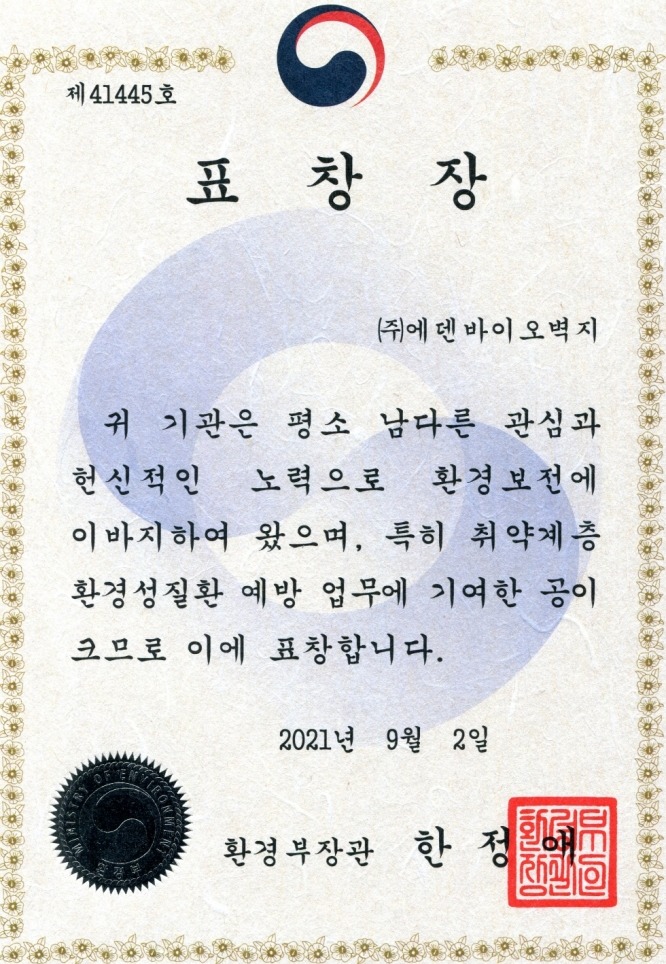 제 41445 호
표 창 장
㈜에덴바이오벽지
귀 기관은 평소 남다른 관심과
헌신적인 노력으로 환경보전에
이바지하여 왔으며, 특히 취약계층
환경성질환 예방 업무에 기여한 공이
크므로 이에 표창합니다.
2021년 9월 2일
MINISTRY OF ENVIRONMENT
환경부
환경부장관 한 정 애